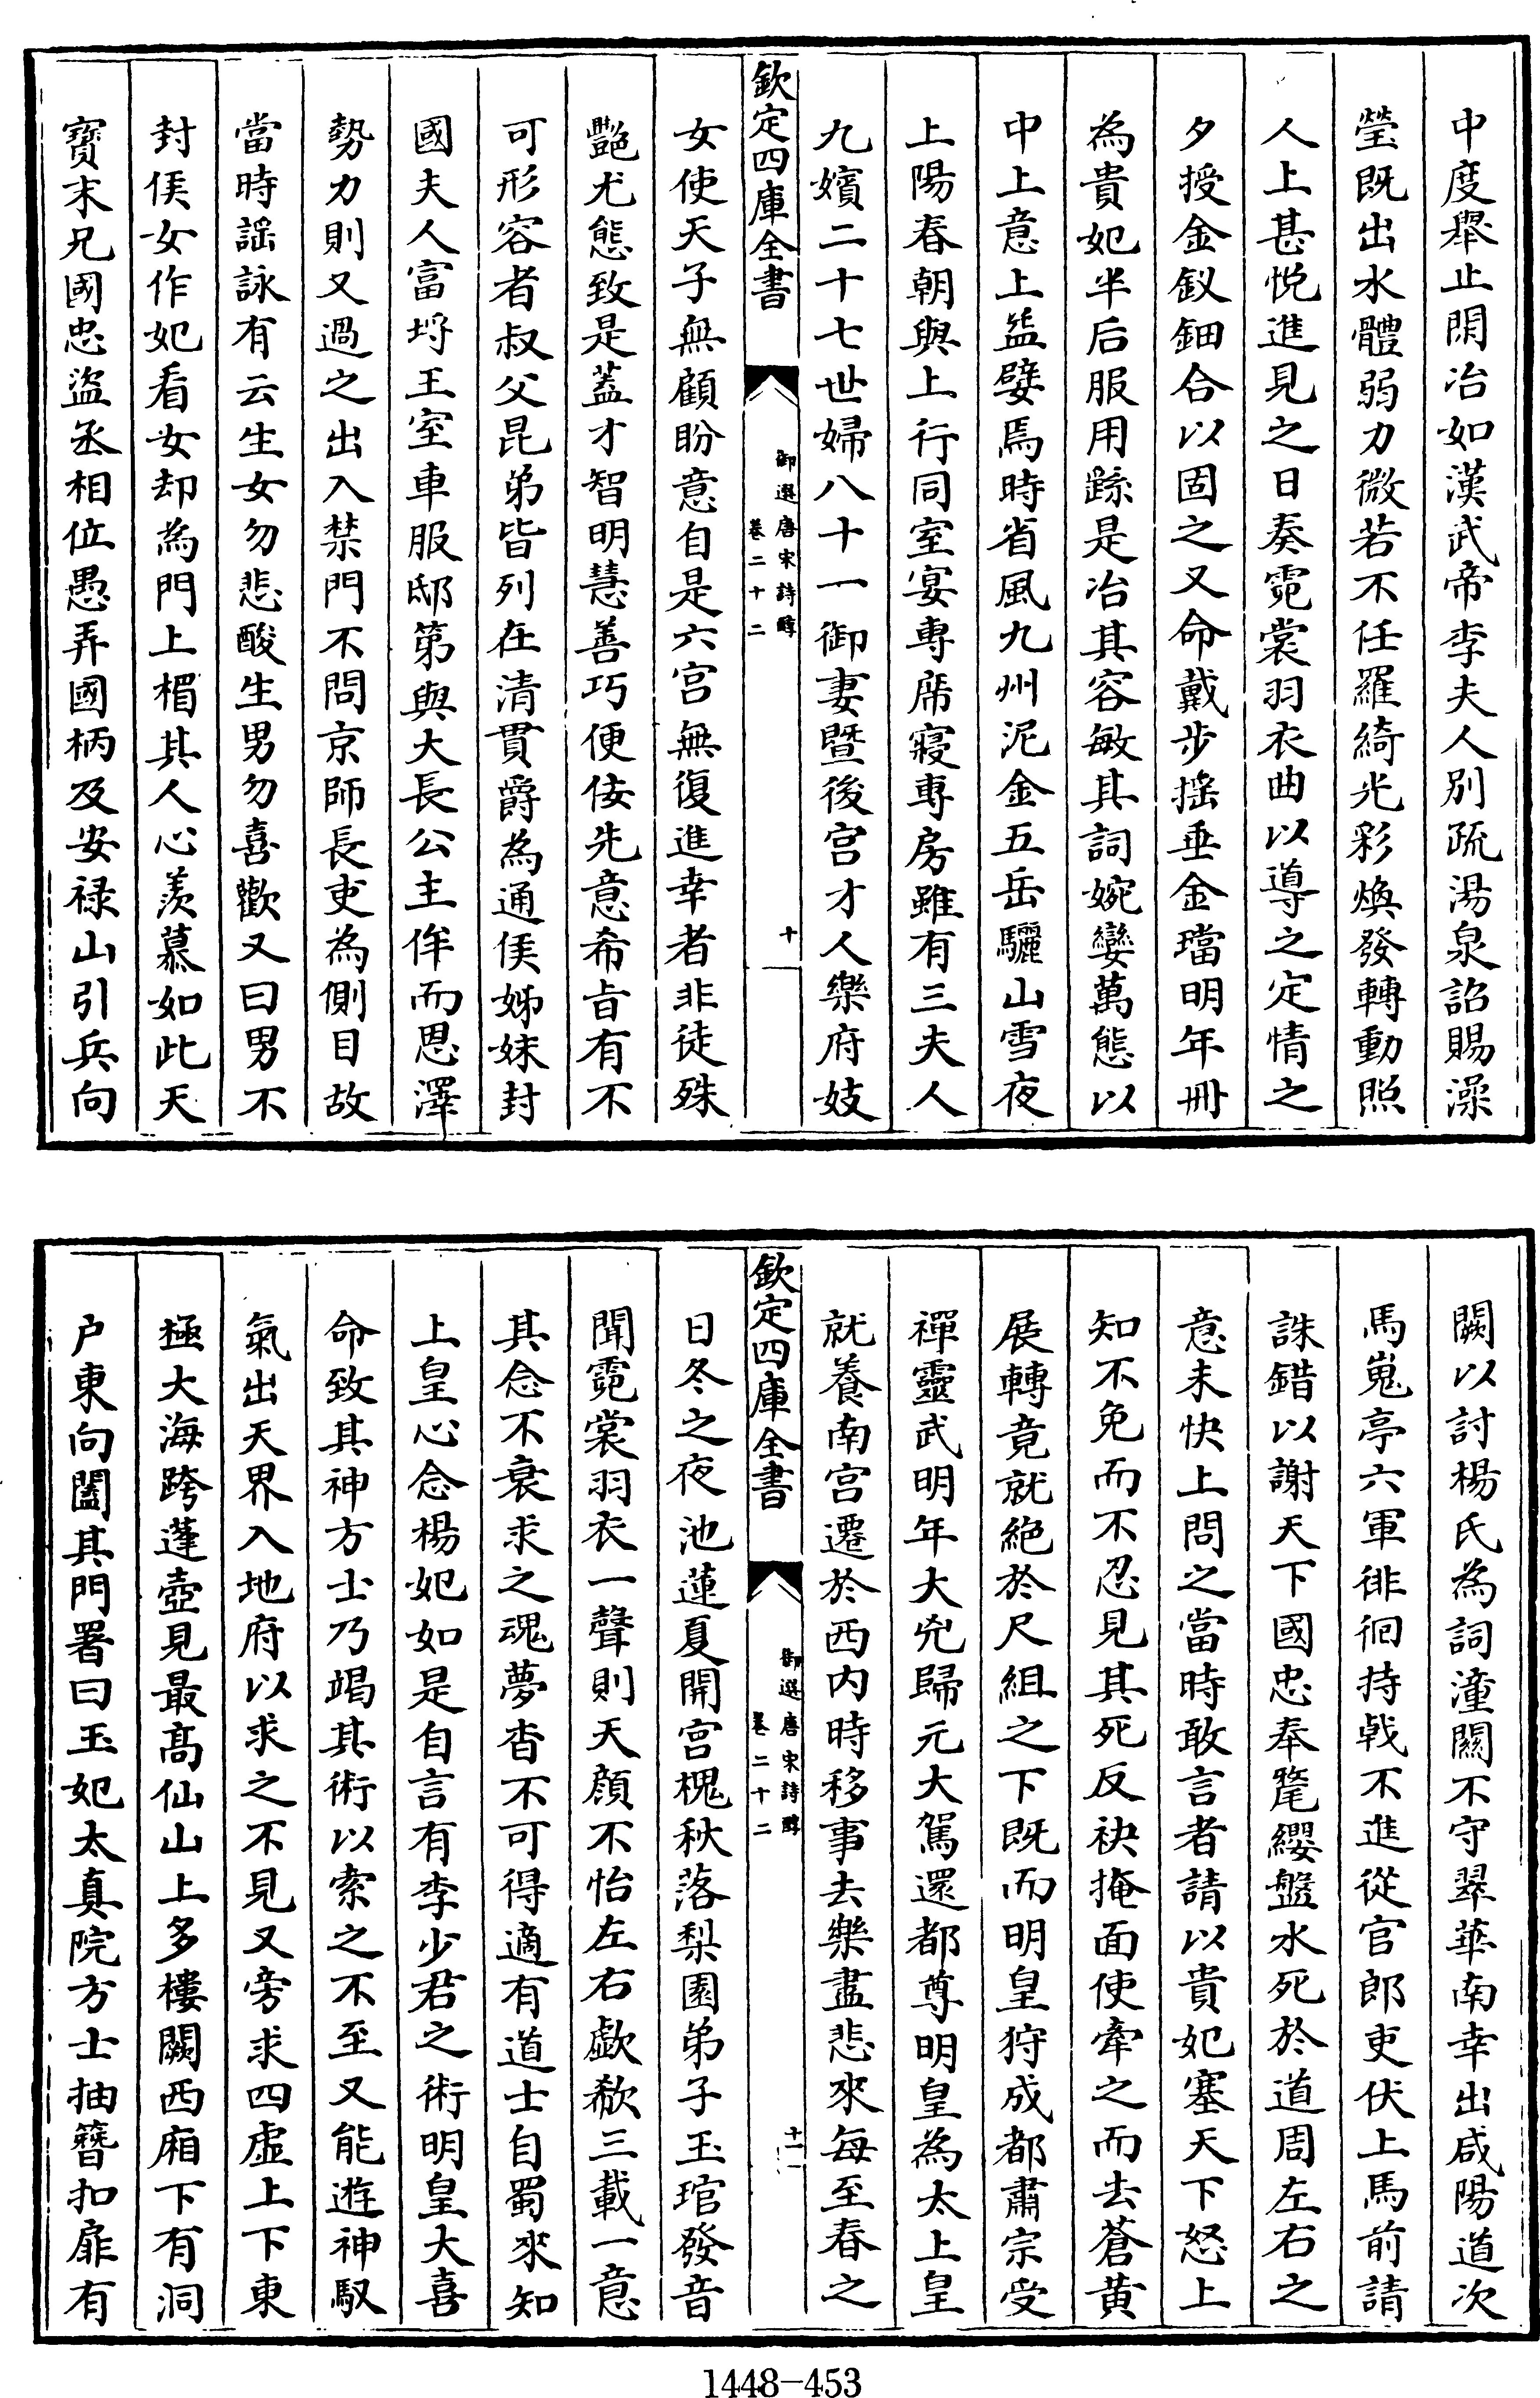 中度舉止閑冶如漢武帝李夫人别疏湯泉詔賜澡
瑩既出水體弱力微若不任羅綺光彩煥發轉動照
人上甚悦進見之日奏霓裳羽衣曲以導之定情之
夕授金釵鈿合以固之又命戴步摇垂金璫明年冊
為貴妃半后服用繇是冶其容敏其詞婉孌萬態以
中上意上益嬖焉時省風九州泥金五岳驪山雪夜
上陽春朝與上行同室宴專席寢專房雖有三夫人
九嬪二十七世婦八十一御妻暨後宫才人樂府妓
欽定四庫全書
御選唐宋詩醇
卷二十二
十
女使天子無顧盼意自是六宫無復進幸者非徒殊
艷尤態致是蓋才智明慧善巧便佞先意希㫖有不
可形容者叔父昆弟皆列在清貫爵為通侯姊妹封
國夫人富埒王室車服邸第與大長公主侔而恩澤
勢力則又過之出入禁門不問京師長吏為側目故
當時謡詠有云生女勿悲酸生男勿喜歡又曰男不
封侯女作妃看女却為門上楣其人心羨慕如此天
寳末兄國忠盜丞相位愚弄國柄及安禄山引兵向
闕以討楊氏為詞潼關不守翠華南幸出咸陽道次
馬嵬亭六軍徘徊持戟不進從官郎吏伏上馬前請
誅錯以謝天下國忠奉氂纓盤水死於道周左右之
意未快上問之當時敢言者請以貴妃塞天下怒上
知不免而不忍見其死反袂掩面使牽之而去蒼黄
展轉竟就絶於尺組之下既而明皇狩成都肅宗受
禪靈武明年大兇歸元大駕還都尊明皇為太上皇
就養南宫遷於西内時移事去樂盡悲來每至春之
欽定四庫全書
御選唐宋詩醇
卷二十二
十一
日冬之夜池蓮夏開宫槐秋落梨園弟子玉琯發音
聞霓裳羽衣一聲則天顔不怡左右歔欷三載一意
其念不衰求之魂夢杳不可得適有道士自蜀來知
上皇心念楊妃如是自言有李少君之術明皇大喜
命致其神方士乃竭其術以索之不至又能遊神馭
氣出天界入地府以求之不見又旁求四虚上下東
極大海跨蓬壺見最髙仙山上多樓闕西廂下有洞
户東向闔其門署曰玉妃太真院方士抽簪扣扉有
1448-453